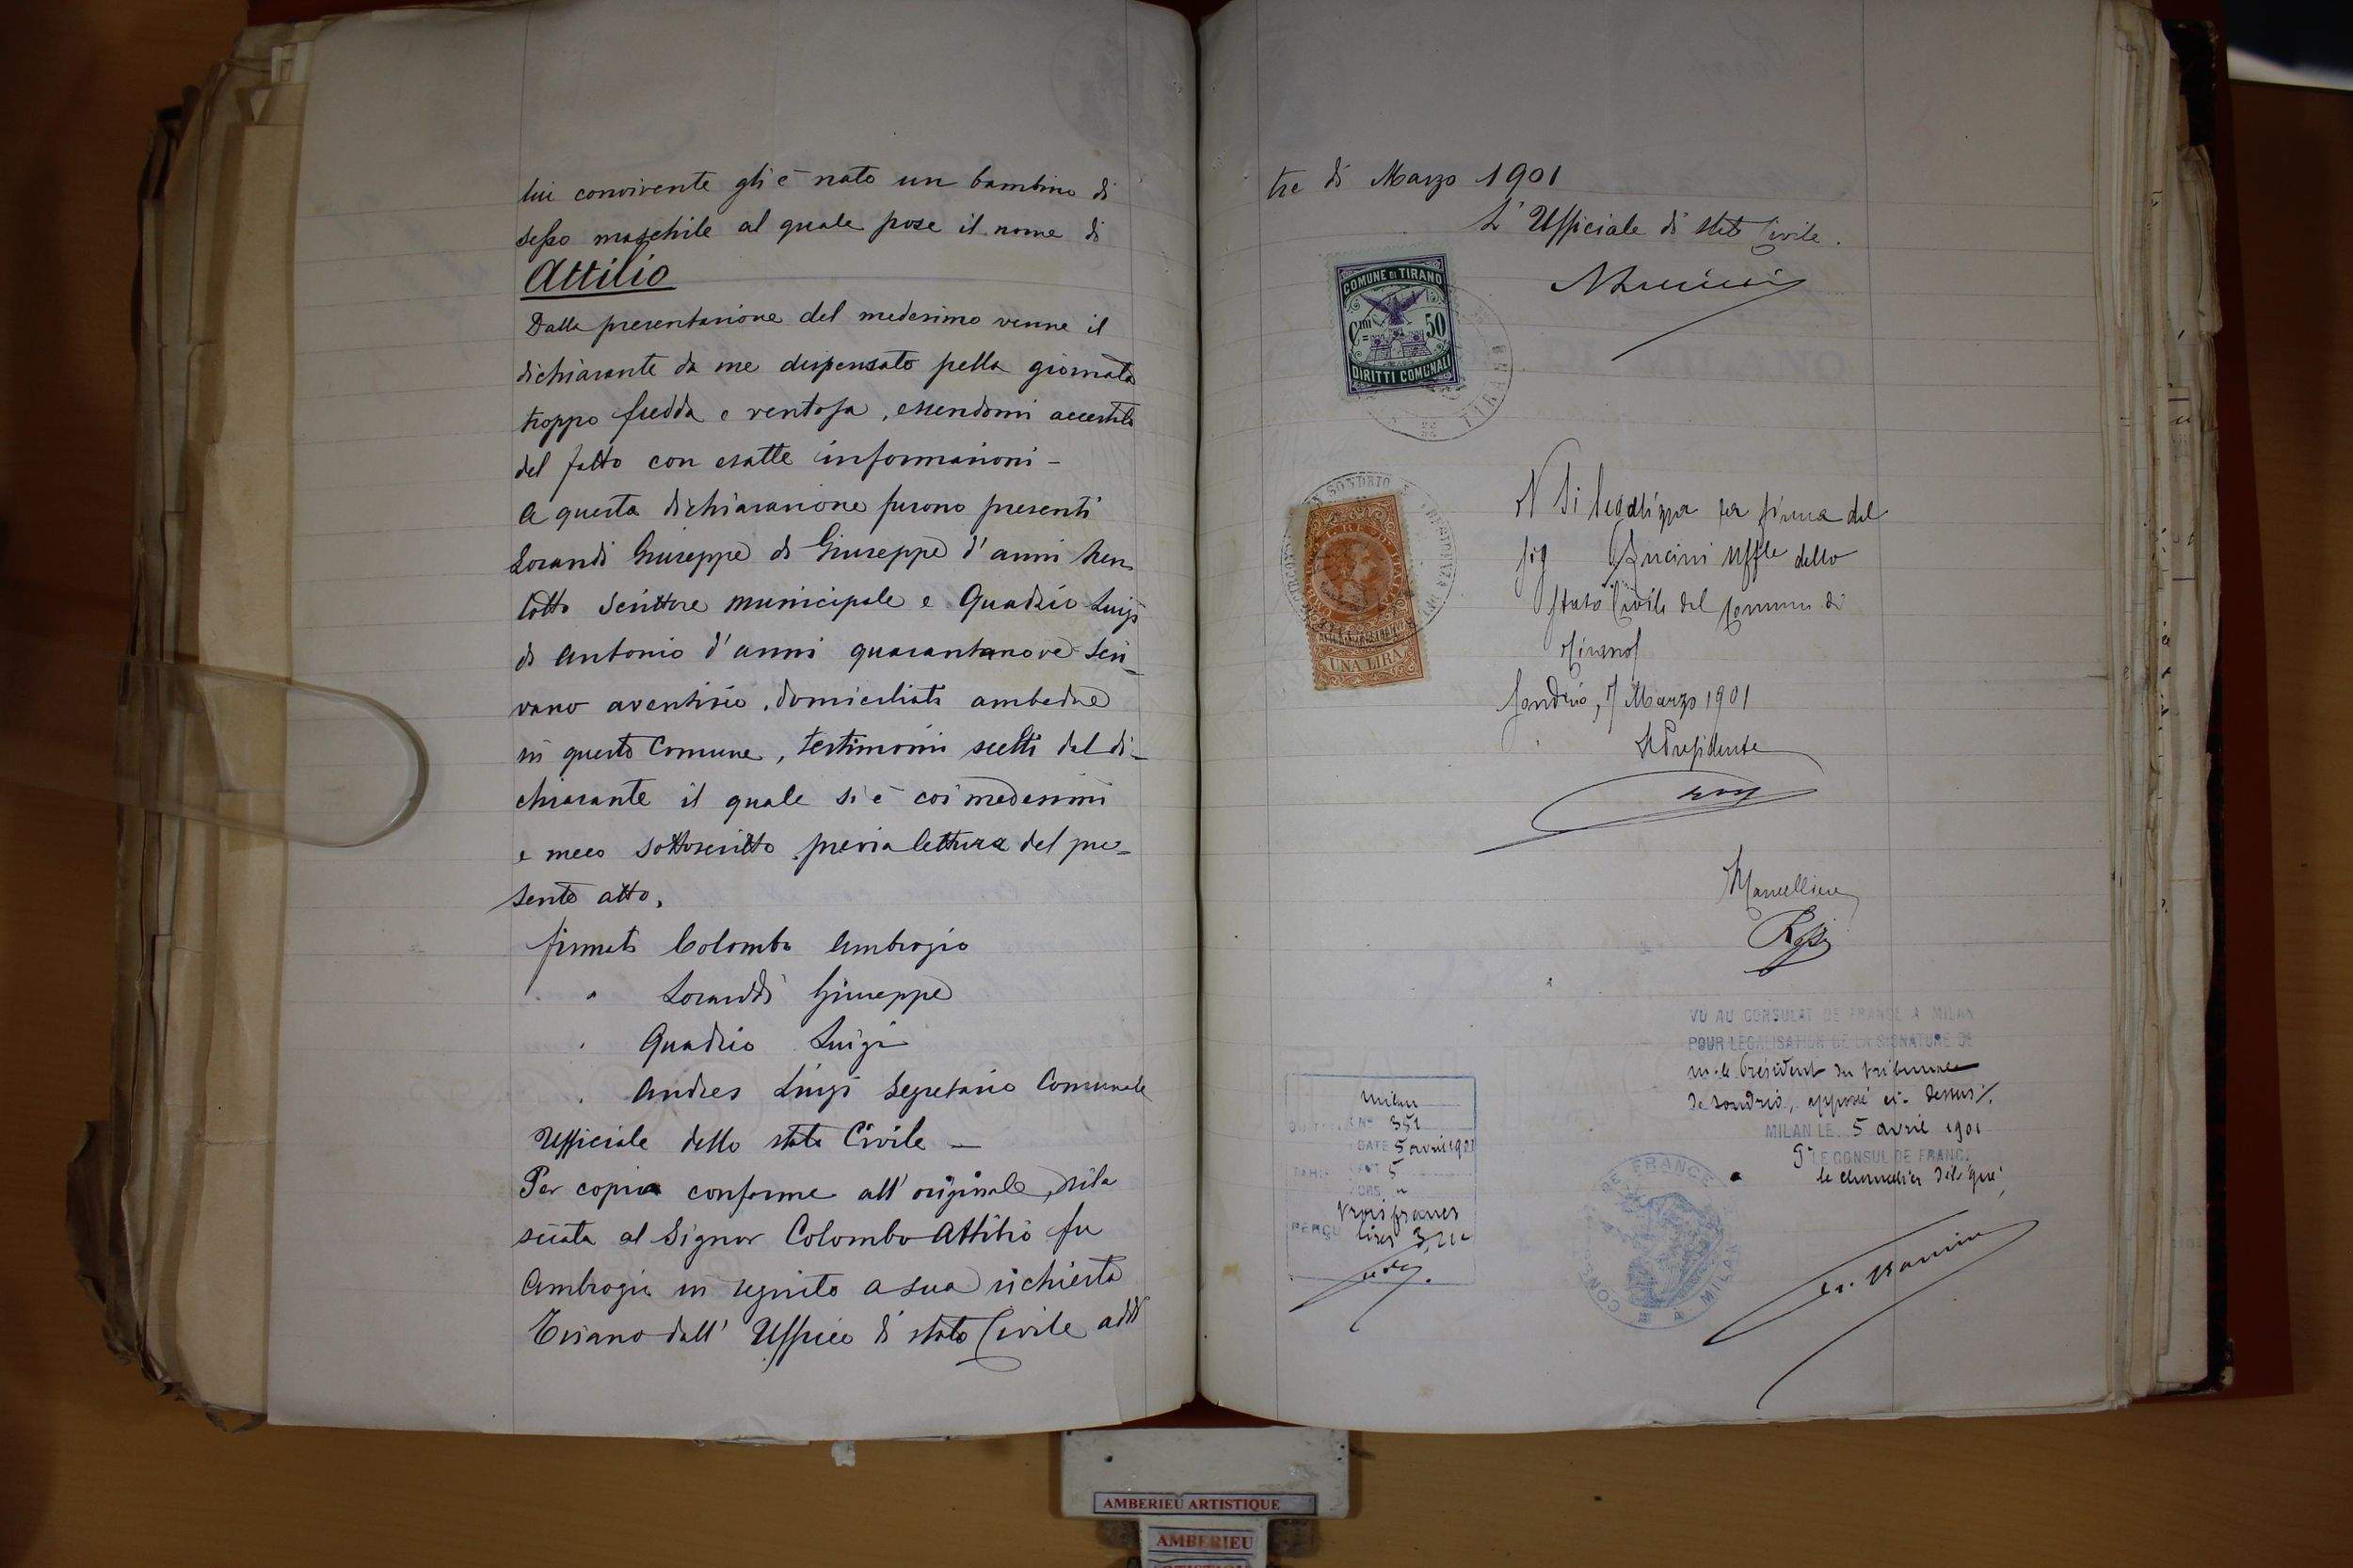 lui convivente gli è nato un bambino di
sesso maschile al quale pose il nome di
Attilio
Dalla presentazione del medesimo venne il
dichiarante da me dispensato pella giornata
troppo fredda e ventosa, essendomi accertato
del fatto con esatte informazioni -
A questa dichiarazione furono presenti
Lorandi Giuseppe di Giuseppe d'anni tren
totto scrittore municipale e Quadrio Luigi
di Antonio d'anni quarantanove scri-
vano avventizio, domiciliati ambedue
in questo Comune, testimoni scelti dal di-
chiarante il quale si è coi medesimi
e meco sottoscritto previa lettura del pre-
sente atto.
firmati Colombo Ambrogio
" Lorandi Giuseppe
" Quadrio Luigi
" Andres Luigi Segretario Comunale
Ufficiale dello stato Civile -
Per copia conforme all'originale, rila
sciata al Signor Colombo Attilio fu
Ambrogio in seguito a sua richiesta
Tirano dall' Ufficio di stato Civile addì
tre di Marzo 1901
L'Ufficiale di stato Civile.
COMUNE DI TIRANO
Cmi 50
DIRITTI COMUNALI
TIRANO
SONDRIO
UNA LIRA
Si legalizza la firma del
sig Uffle dello
stato Civile del Comune di
Tirano
Sondrio, 7 Marzo 1901
Il Presidente
VU AU CONSULAT DE FRANCE A MILAN
POUR LEGALISATION DE LA SIGNATURE DE
M. le Président du tribunal
de Sondrio, apposée ci-dessus
MILAN LE 5 avril 1901
Pr LE CONSUL DE FRANCE
le chancelier délégué,
Milan
No 351
DATE 5 avril 1901
TARIF ART 5
PERÇU trois francs
CONSULAT DE FRANCE A MILAN
AMBERIEU ARTISTIQUE
AMBERIEU
ARTISTIQUE